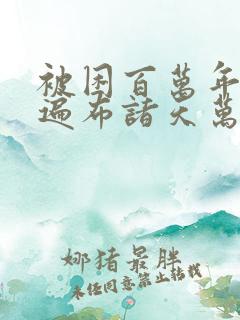 被困百萬年
遍布諸天萬
娜猪最胖
未经同意禁止转载